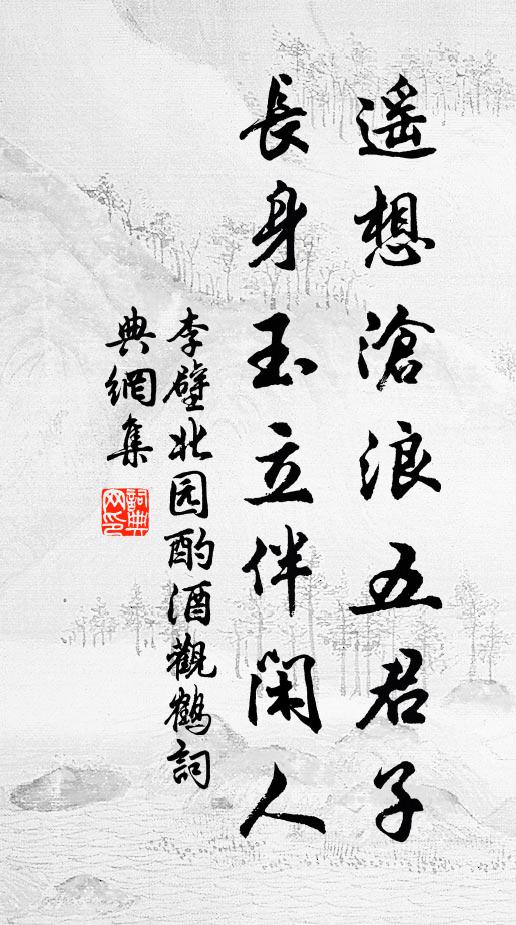 遥想滄浪五君子
長身玉立伴閑人
李壁北园酌酒觀鶴詞
典網集
詞典
网印